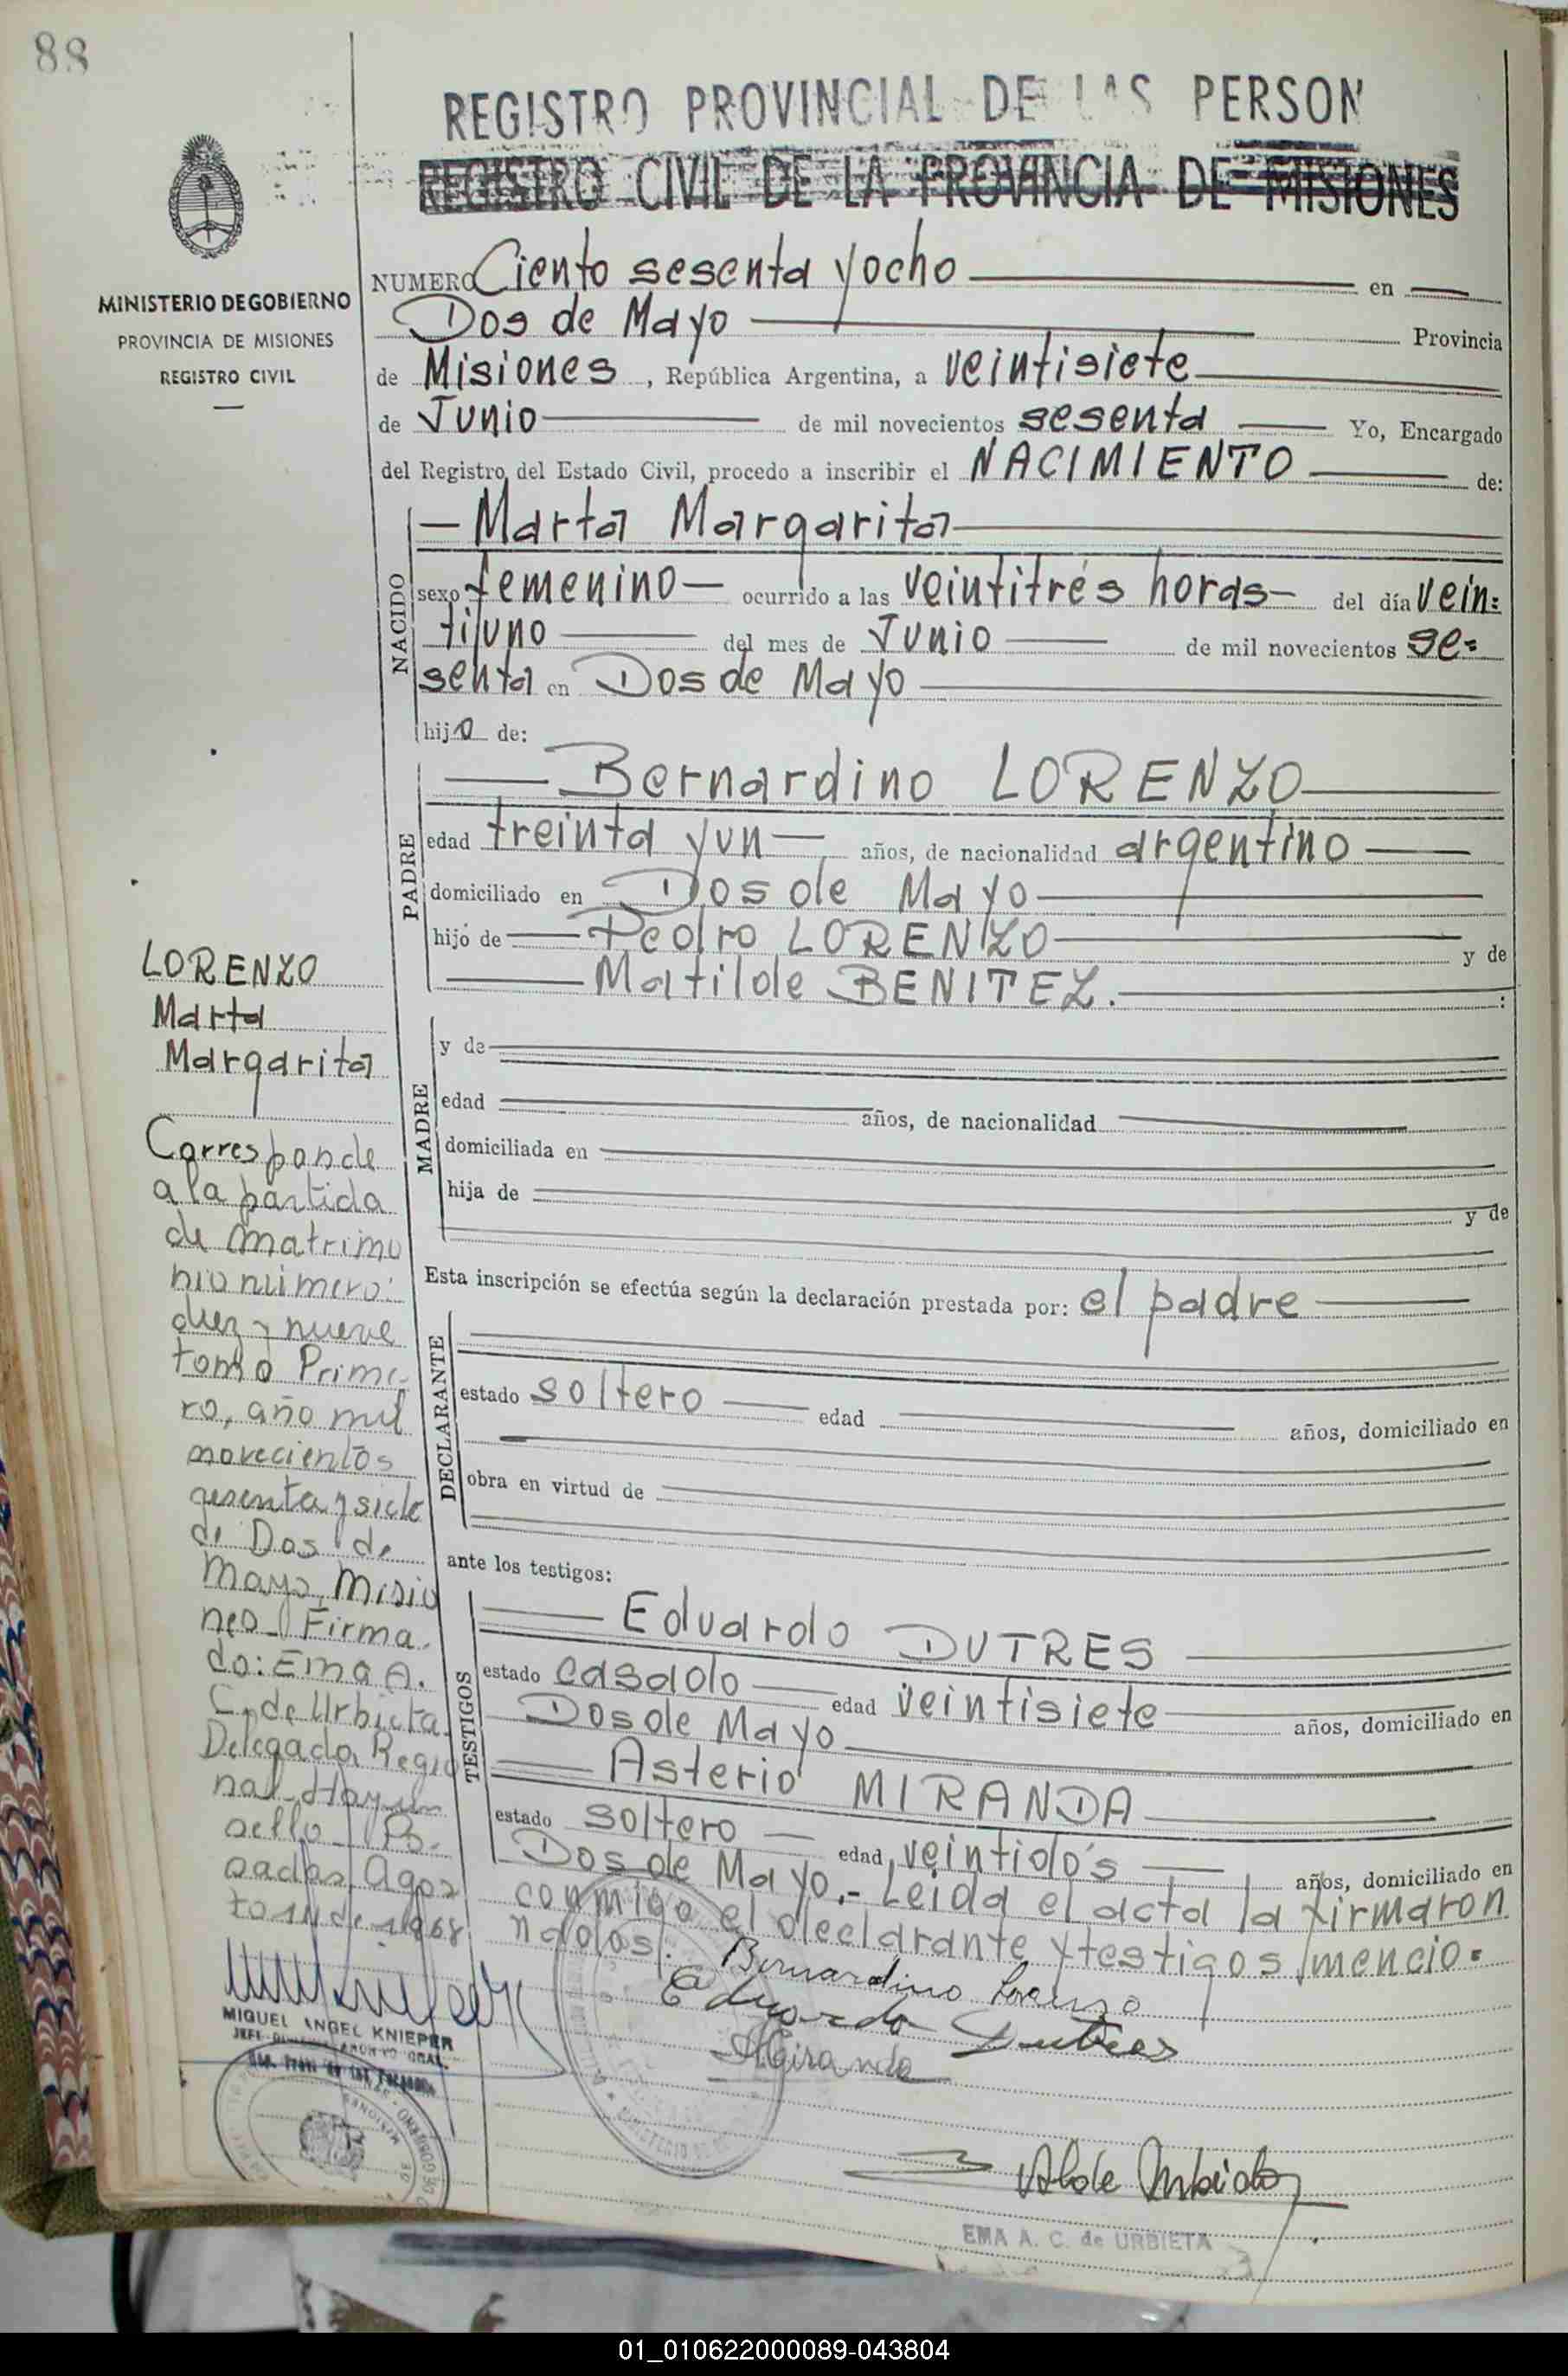 88
REGISTRO PROVINCIAL DE LAS PERSON
REGISTRO CIVIL DE LA PROVINCIA DE MISIONES
MINISTERIO DE GOBIERNO
PROVINCIA DE MISIONES
REGISTRO CIVIL
NUMERO Ciento sesenta y ocho en
Dos de Mayo Provincia
de Misiones, República Argentina, a veintisiete
de Junio de mil novecientos sesenta Yo, Encargado
del Registro del Estado Civil, procedo a inscribir el NACIMIENTO de:
NACIDO
- Marta Margarita
sexo femenino - ocurrido a las veintitrés horas - del día vein=
tiuno del mes de Junio de mil novecientos se=
senta en Dos de Mayo
hija de:
PADRE
Bernardino LORENZO
edad treinta y un años, de nacionalidad argentino
domiciliado en Dos de Mayo
hijo de Pedro LORENZO y de
Matilde BENITEZ.
MADRE
y de
edad años, de nacionalidad
domiciliada en
hija de y de
Esta inscripción se efectúa según la declaración prestada por: el padre
DECLARANTE
estado soltero edad años, domiciliado en
obra en virtud de
ante los testigos:
TESTIGOS
Eduardo DUTRES
estado casado edad veintisiete años, domiciliado en
Dos de Mayo
Asterio MIRANDA
estado soltero edad veintidós años, domiciliado en
Dos de Mayo.- Leida el acta la firmaron
conmigo el declarante y testigos mencio=
nados.
Bernardino Lorenzo
Eduardo Dutres
AMiranda
EMA A. C. de URBIETA
LORENZO
Marta
Margarita
Corresponde
a la partida
de matrimo
nio número:
diez y nueve
tomo Prime-
ro, año mil
novecientos
sesenta y siete
de Dos de
Mayo, Misio
nes_ Firma-
do: Ema A.
C. de Urbieta
Delegada Regio
nal_ Hay un
sello_ Po-
sadas, Agos
to 14 de 1968
MIGUEL ANGEL KNIEPER
01_010622000089-043804